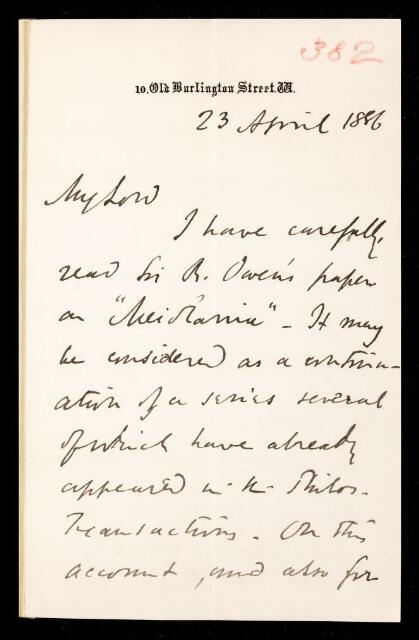 382
10, Old Burlington Street. W.
23 April 1886
My Lord
I have carefully
read Sir R. Owen's paper
on "Meiolania" - It may
be considered as a continu-
ation of a series several
of which have already
appeared in the Philos.
Transactions. On this
account, and also for